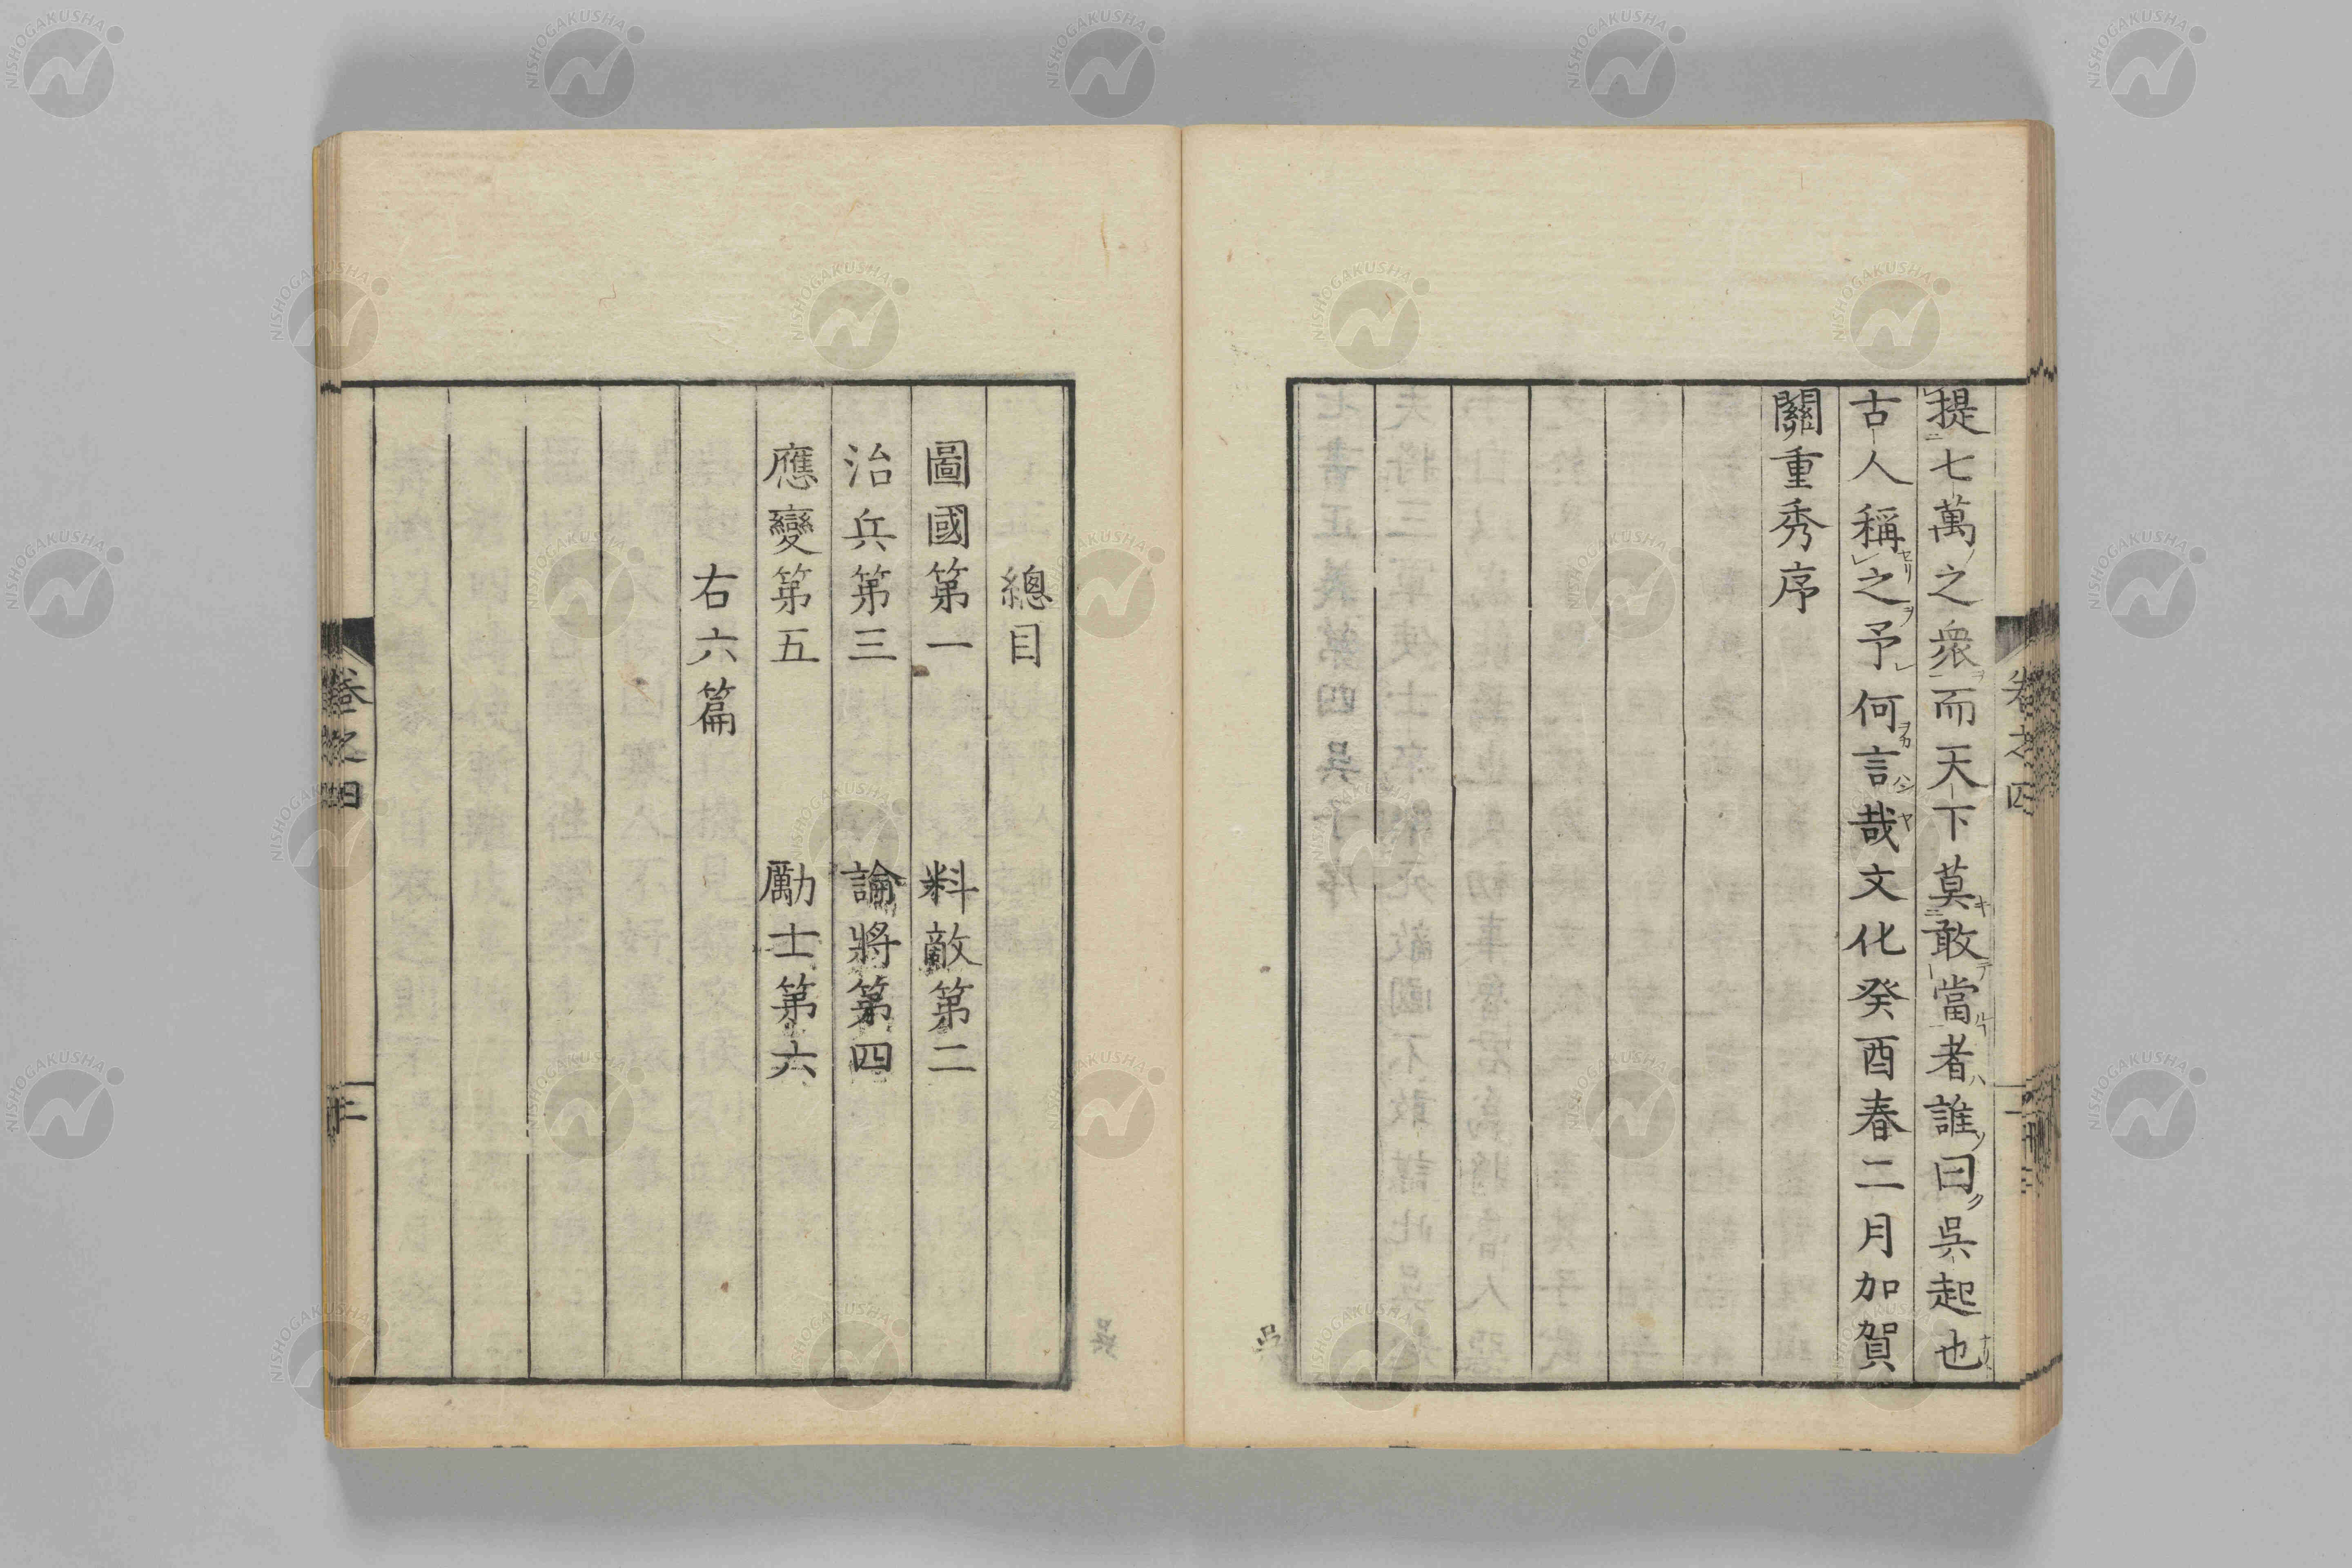 提七萬之衆而天下莫敢當者誰曰吳起也
古人稱之予何言哉文化癸酉春二月加賀
關重秀序
卷之四
二
總目
圖國第一　料敵第二
治兵第三　論將第四
應變第五　勵士第六
右六篇
卷之四
NISHOGAKUSHA